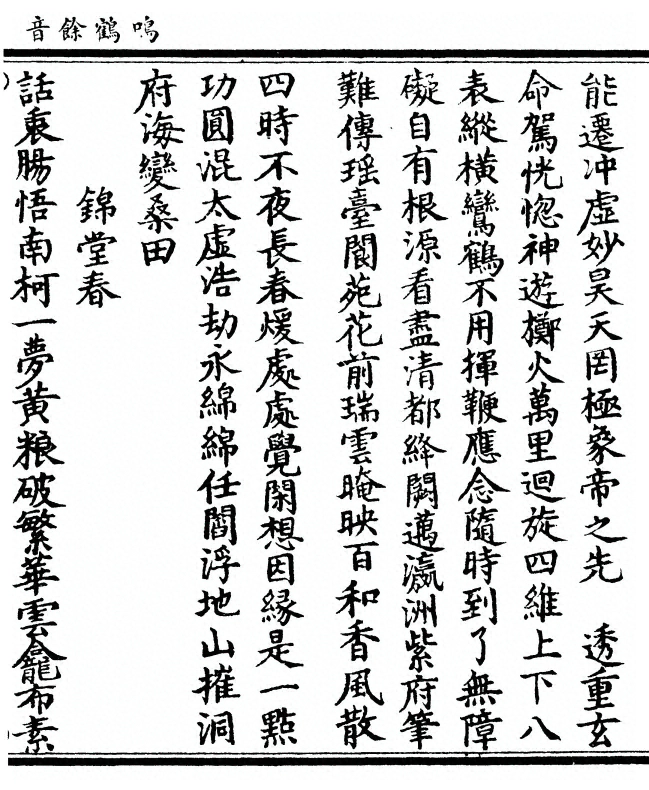 鳴鶴餘音
能遷冲虛妙昊天罔極象帝之先　透重玄
命駕恍惚神遊擲火萬里迴旋四維上下八
表縱橫鸞鶴不用揮鞭應念隨時到了無障
礙自有根源看盡清都絳闕邁瀛洲紫府筆
難傳瑶臺閬苑花前瑞雲晻映百和香風散
四時不夜長春煖處處覺閑想因緣是一點
功圓混太虛浩劫永綿綿任閻浮地山摧洞
府海變桑田
錦堂春
話裏腸悟南柯一夢黄粮破繁華雲龕布素